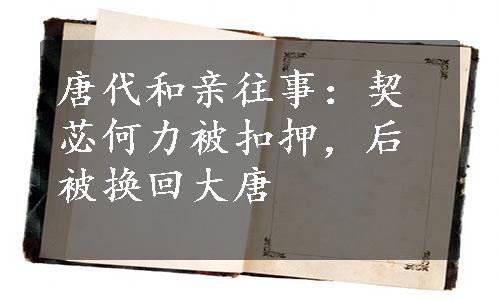 唐代和亲往事：契
苾何力被扣押，后
被换回大唐